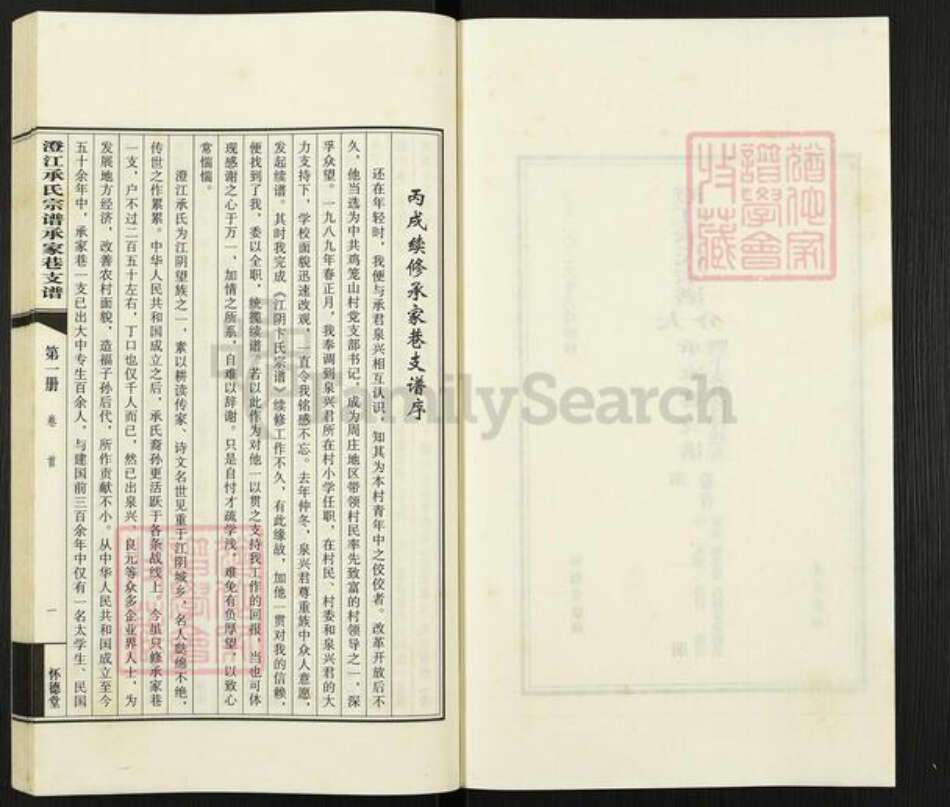 丙戌续修承家巷支谱序
还在年轻时，我便与承君泉兴相互认识，知其为本村青年中之佼佼者。改革开放后不
久，他当选为中共鸡笼山村党支部书记，成为周庄地区带领村民率先致富的村领导之一，深
孚众望。一九八九年春正月，我奉调到泉兴君所在村小学任职，在村民、村委和泉兴君的大
力支持下，学校面貌迅速改观，一直令我铭感不忘。去年仲冬，泉兴君尊重族中众人意愿，
发起续谱。其时我完成《江阴卞氏宗谱》续修工作不久，有此缘故，加他一贯对我的信赖，
便找到了我，委以全职，统揽续谱。若以此作为对他一以贯之支持我工作的回报，当也可体
现感谢之心于万一，加情之所系，自难以辞谢。只是自忖才疏学浅，难免有负厚望，以致心
常惴惴。
澄江承氏为江阴望族之一，素以耕读传家、诗文名世见重于江阴城乡，名人瓞绵不绝，
传世之作累累。中华人民共和国成立之后，承氏裔孙更活跃于各条战线上。今虽只修承家巷
一支，户不过二百五十左右，丁口也仅千人而已，然已出泉兴、良元等众多企业界人士，为
发展地方经济，改善农村面貌，造福子孙后代，所作贡献不小。从中华人民共和国成立至今
五十余年中，承家巷一支已出大中专生百余人，与建国前三百余年中仅有一名太学生、民国
澄江承氏宗谱承家巷支谱
第一册
卷首
一
怀德堂
FamilySearch
犹他家
谱学会
收藏